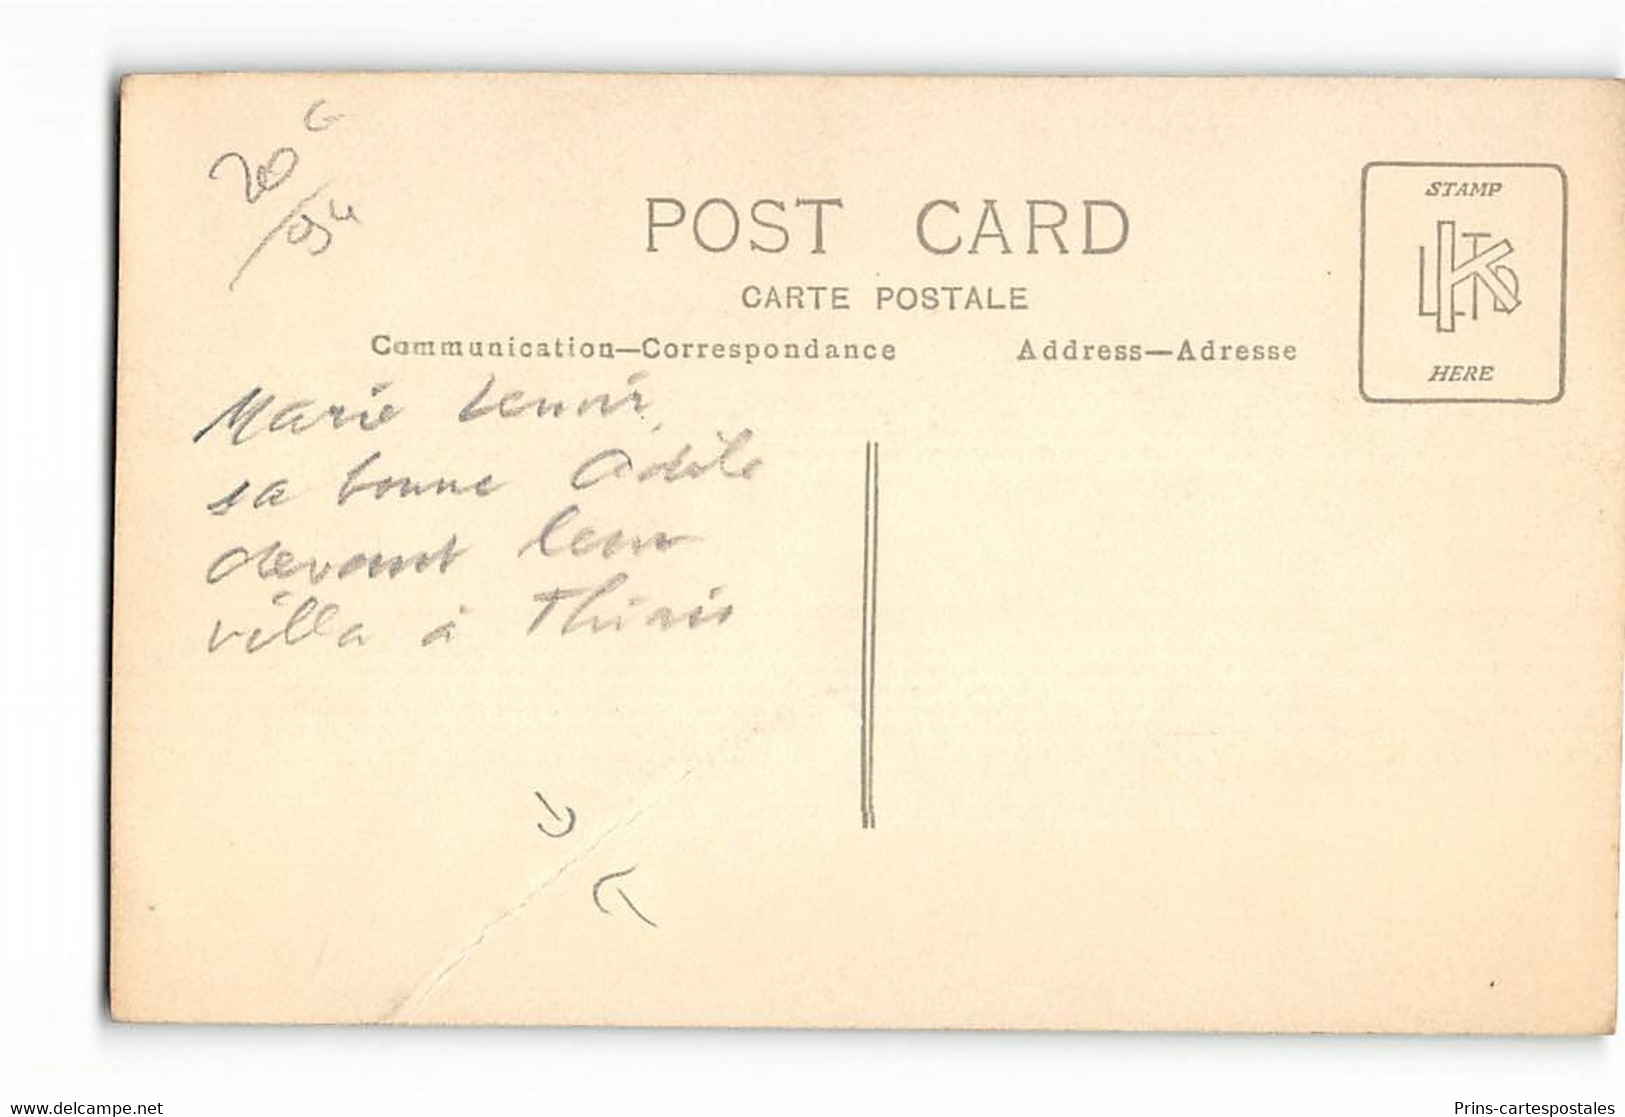 20 G
/94
POST CARD
CARTE POSTALE
Communication—Correspondance
Address—Adresse
STAMP
K LTD
HERE
Marie Lenoir,
sa bonne Adèle
devant leur
villa à Thiais
www.delcampe.net
Prins-cartespostales